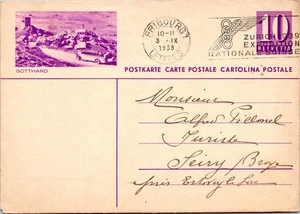 FRIBOURG 1
10-11
3 · IX
1938
LETTRES
ZURICH 1939
EXPOSITION
NATIONALE SUISSE
10
HELVETIA
GOTTHARD
POSTKARTE CARTE POSTALE CARTOLINA POSTALE
Monsieur
Alfred
Juriste
Seiry Broye
près Estavayer le Lac